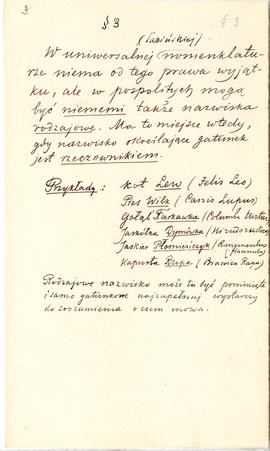 3
§ 3
§ 3
(łacińskiej)
W uniwersalnej nomenklatu-
rze niema od tego prawa wyjąt-
ku, ale w pospolitych mogą
być niememi także nazwiska
rodzajowe. Ma to miejsce wtedy,
gdy nazwisko określające gatunek
jest rzeczownikiem.
Przykłady: Kot Lew (Felis Leo)
Pies Wilk (Canis Lupus)
Gołąb Turkawka (Columba turtur)
Jaskółka Dymówka (Hirudo rustica)
Jaskier Płomieńczyk (Ranunculus
Flammula)
Kapusta Rzepa (Brassica Rapa)
Rodzajowe nazwisko może tu być pominięte
i samo gatunkowe najzupełniej wystarczy
do zrozumienia o czem mowa.